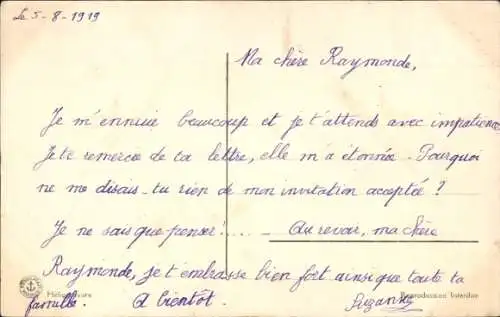 Le 5-8-1919
Ma chère Raymonde,
Je m'ennuie beaucoup et je t'attends avec impatience
Je te remercie de ta lettre, elle m'a étonnée. Pourquoi
ne me disais-tu rien de mon invitation acceptée ?
Je ne sais que penser !.... Au revoir, ma chère
Raymonde, je t'embrasse bien fort ainsi que toute ta
famille. A bientôt. Suzanne
Reproduction interdite